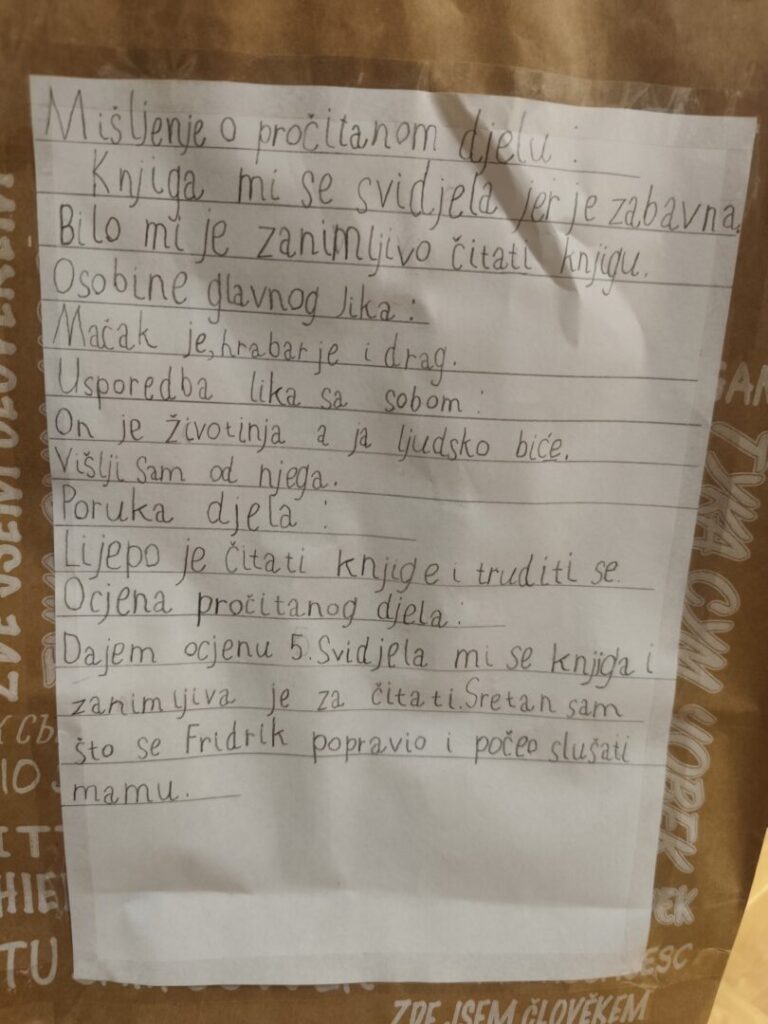 Mišljenje o pročitanom djelu :
Knjiga mi se svidjela jer je zabavna.
Bilo mi je zanimljivo čitati knjigu.
Osobine glavnog lika :
Mačak je, hrabar je i drag.
Usporedba lika sa sobom :
On je životinja a ja ljudsko biće.
Višlji sam od njega.
Poruka djela :
Lijepo je čitati knjige i truditi se
Ocjena pročitanog djela :
Dajem ocjenu 5. Svidjela mi se knjiga i
zanimljiva je za čitati. Sretan sam
što se Fridrik popravio i počeo slušati
mamu.
TU
ZDE JSEM ČLOVĚKEM